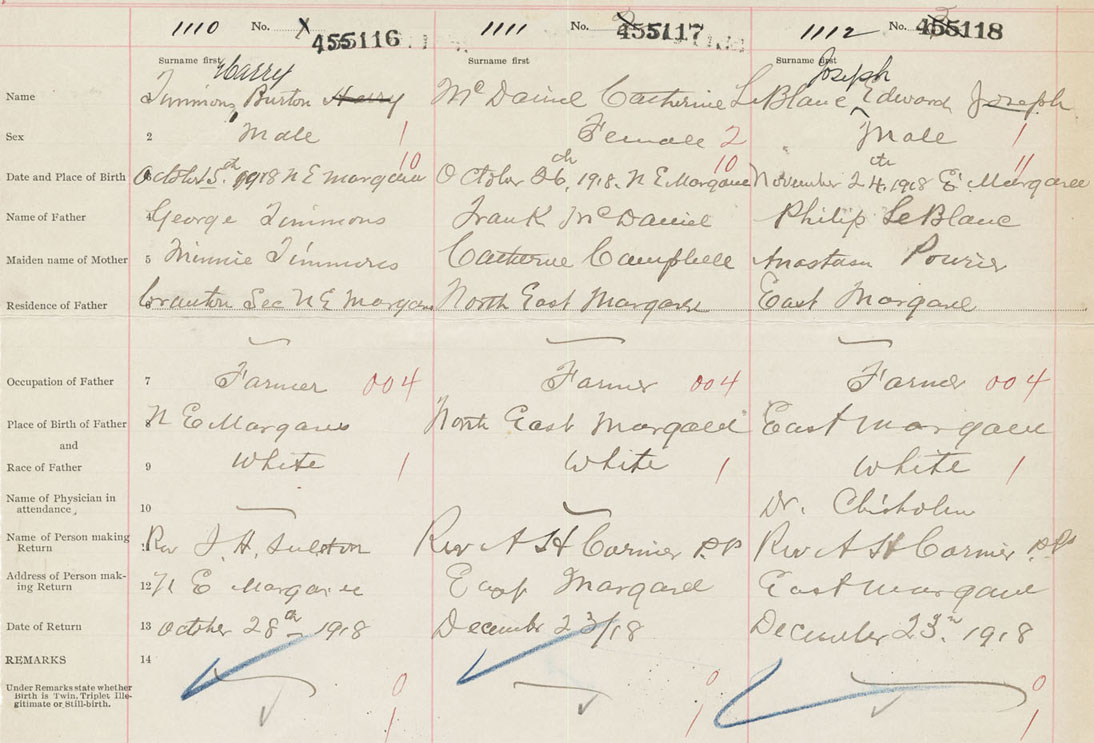 1110 No. X 455116 1111 No. 2 455117 1112 No. 3 455118
Surname first Surname first Surname first
Harry Joseph
Name Timmons, Burton Harry McDaniel Catherine LeBlanc Edward Joseph
Sex 2 Male 1 Female 2 Male 1
10 10 11
Date and Place of Birth 3 October 5th 1918 N E Margaree October 26th, 1918. N E Margaree November 24th, 1918 E Margaree
Name of Father 4 George Timmons Frank McDaniel Philip LeBlanc
Maiden name of Mother 5 Minnie Timmons Catherine Campbell Anastasia Pourier
Residence of Father 6 Cranton Sec N E Margaree North East Margaree East Margaree
Occupation of Father 7 Farmer 004 Farmer 004 Farmer 004
Place of Birth of Father 8 N E Margaree North East Margaree East Margaree
and
Race of Father 9 White 1 White 1 White 1
Name of Physician in
attendance, 10 Dr. Chisholm
Name of Person making
Return 11 Rev J. H. Rev A H Cormier P.P. Rev A H Cormier P.P.
Address of Person mak-
ing Return 12 N E Margaree East Margaree East Margaree
Date of Return 13 October 28th 1918 December 23/18 December 23rd 1918
REMARKS 14
Under Remarks state whether
Birth is Twin, Triplet Ille-
gitimate or Still-birth.
0 0 0
1 1 1